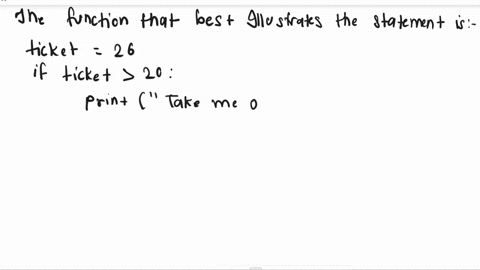 The function that best Illustrates the statement is:-
ticket = 26
if ticket > 20:
print (" Take me o